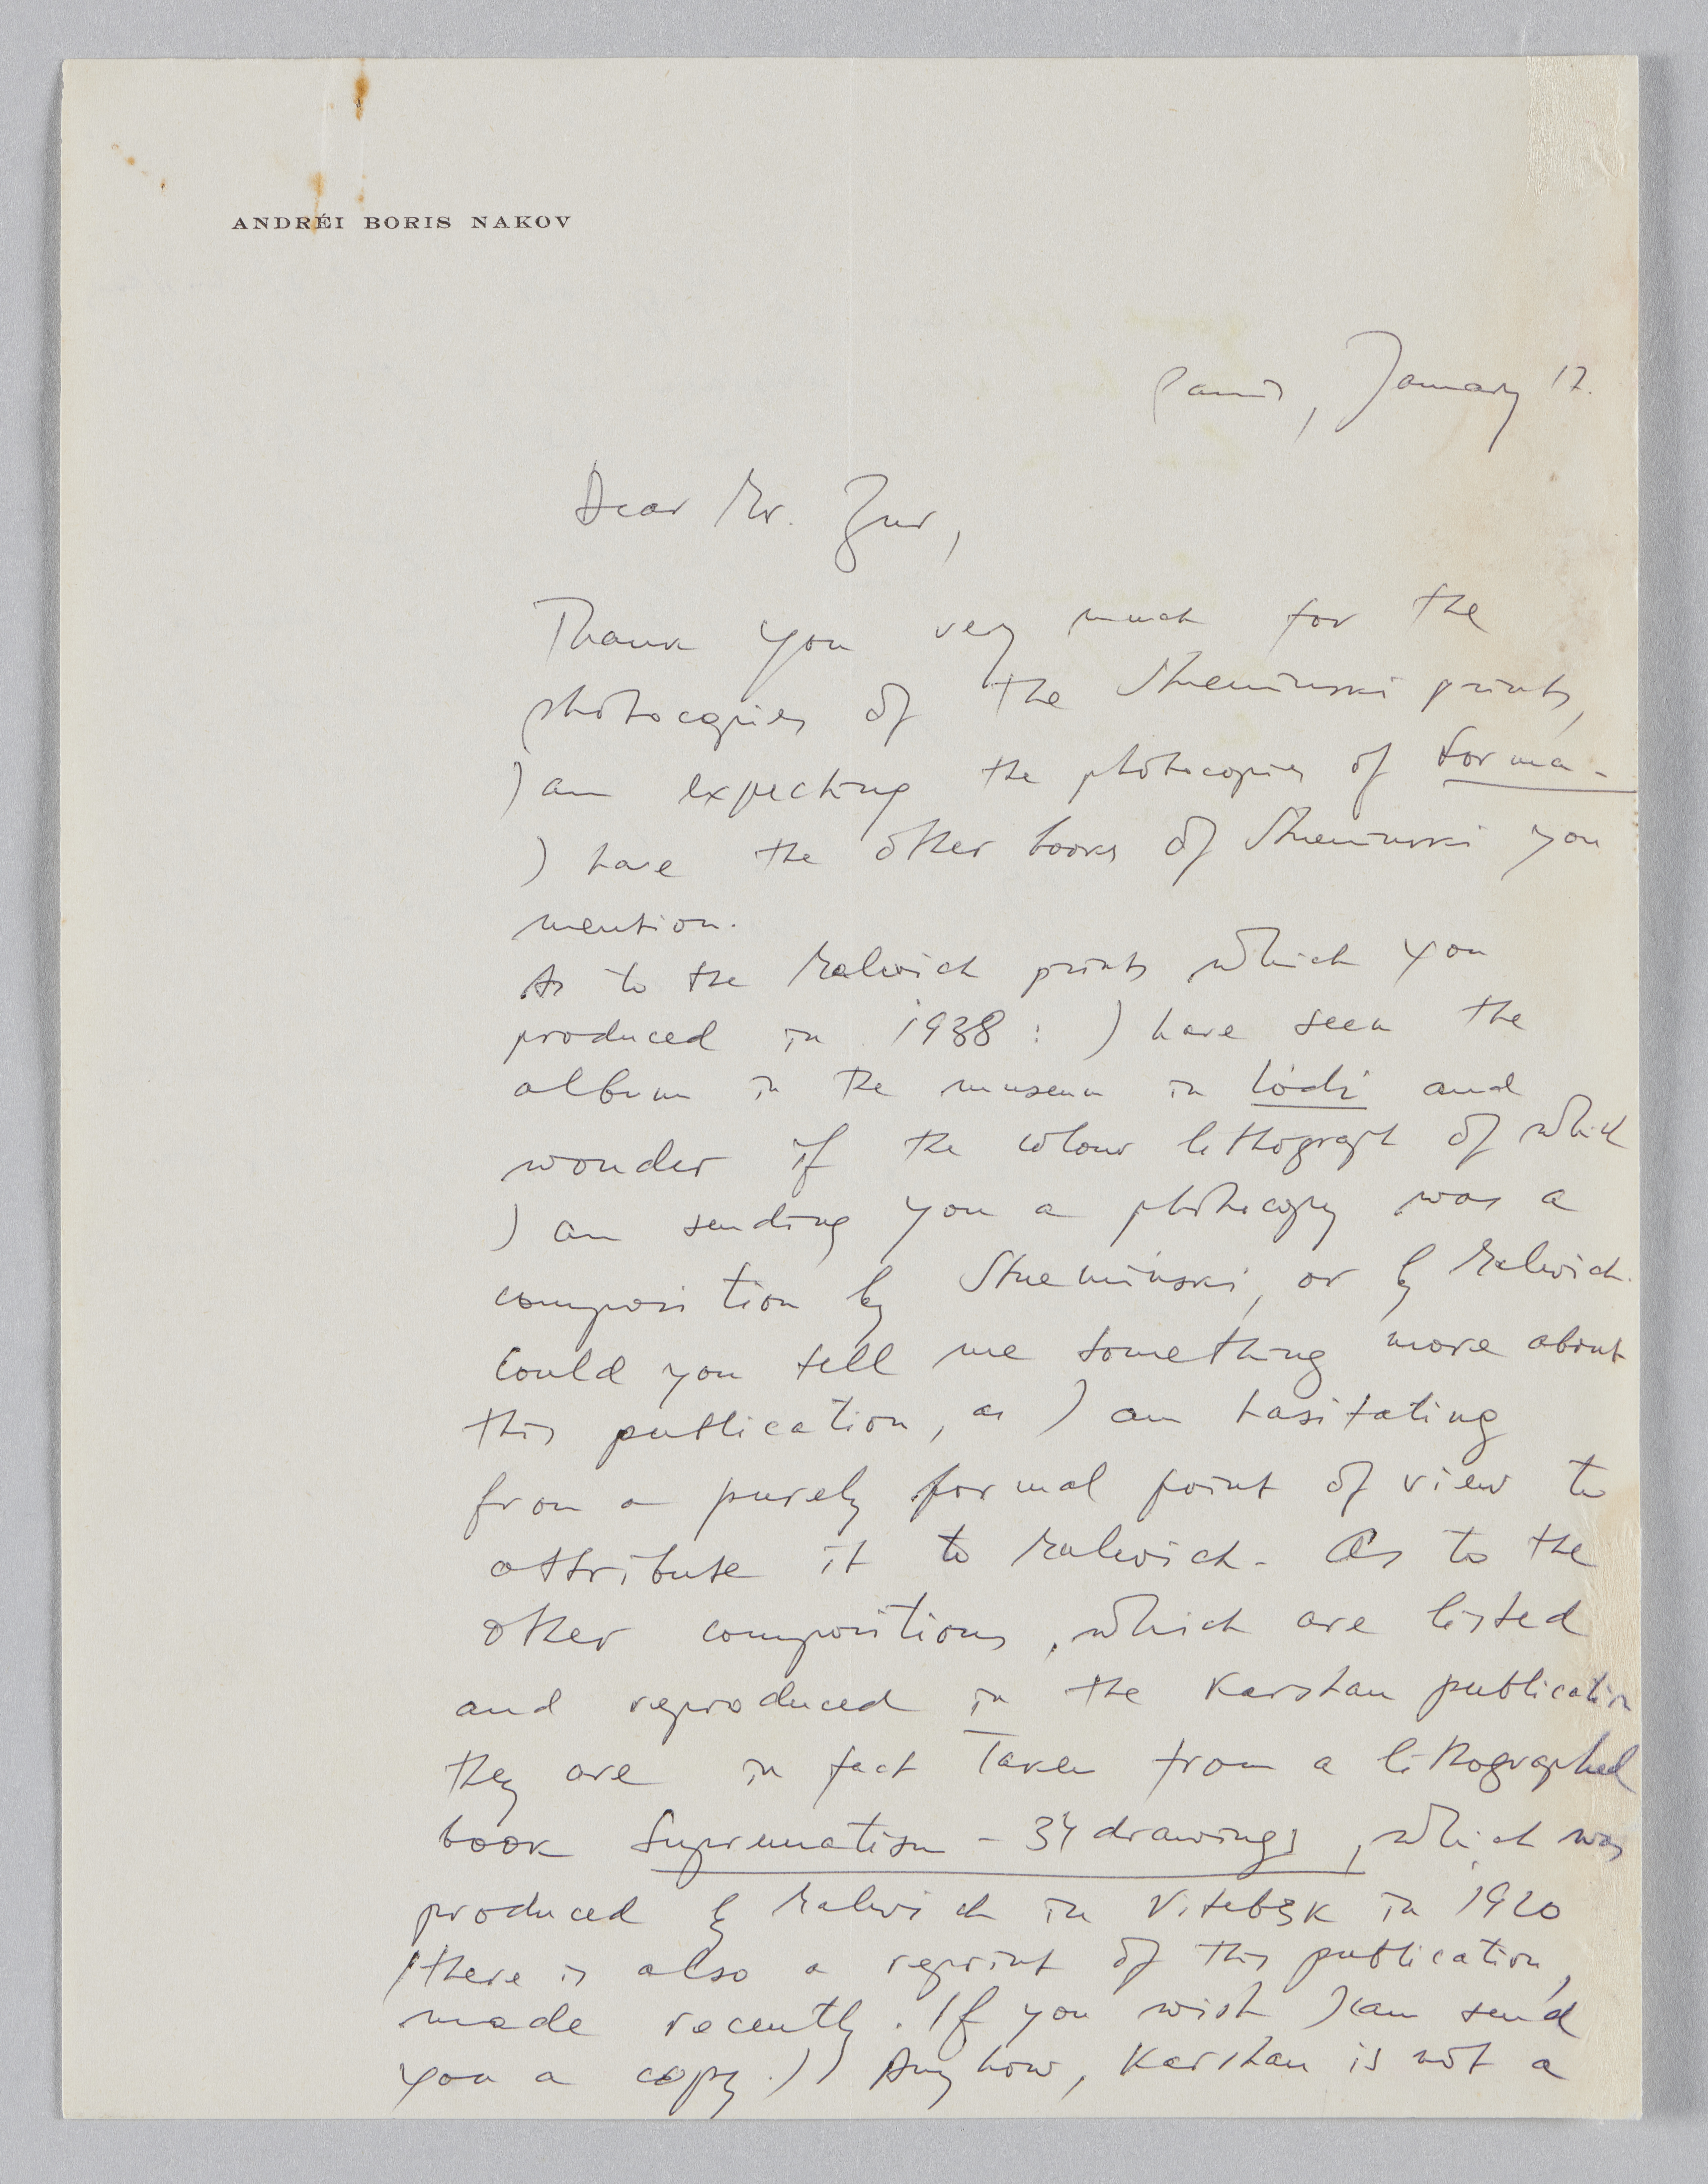 ANDRÉI BORIS NAKOV
Paris, January 17.
Dear Mr. Zur,
Thank you very much for the
photocopies of the Streminski prints,
I am expecting the photocopies of forma -
I have the other books of Streminski you
mention.
As to the Malwich prints which you
produced in 1938 : I have seen the
album in the museum in Łódź and
wonder if the colour lithograph of which
I am sending you a photocopy was a
composition by Streminski, or by Malwich.
Could you tell me something more about
this publication, as I am hasitating
from a purely formal point of view to
attribute it to Malwich. As to the
other compositions, which are listed
and reproduced in the Karshan publication
they are in fact taken from a lithographed
book Suprematism - 34 drawings, which was
produced by Malwich in Vitebsk in 1920
(there is also a reprint of this publication,
made recently. If you wish I can send
you a copy.)) Anyhow, Karshan is not a